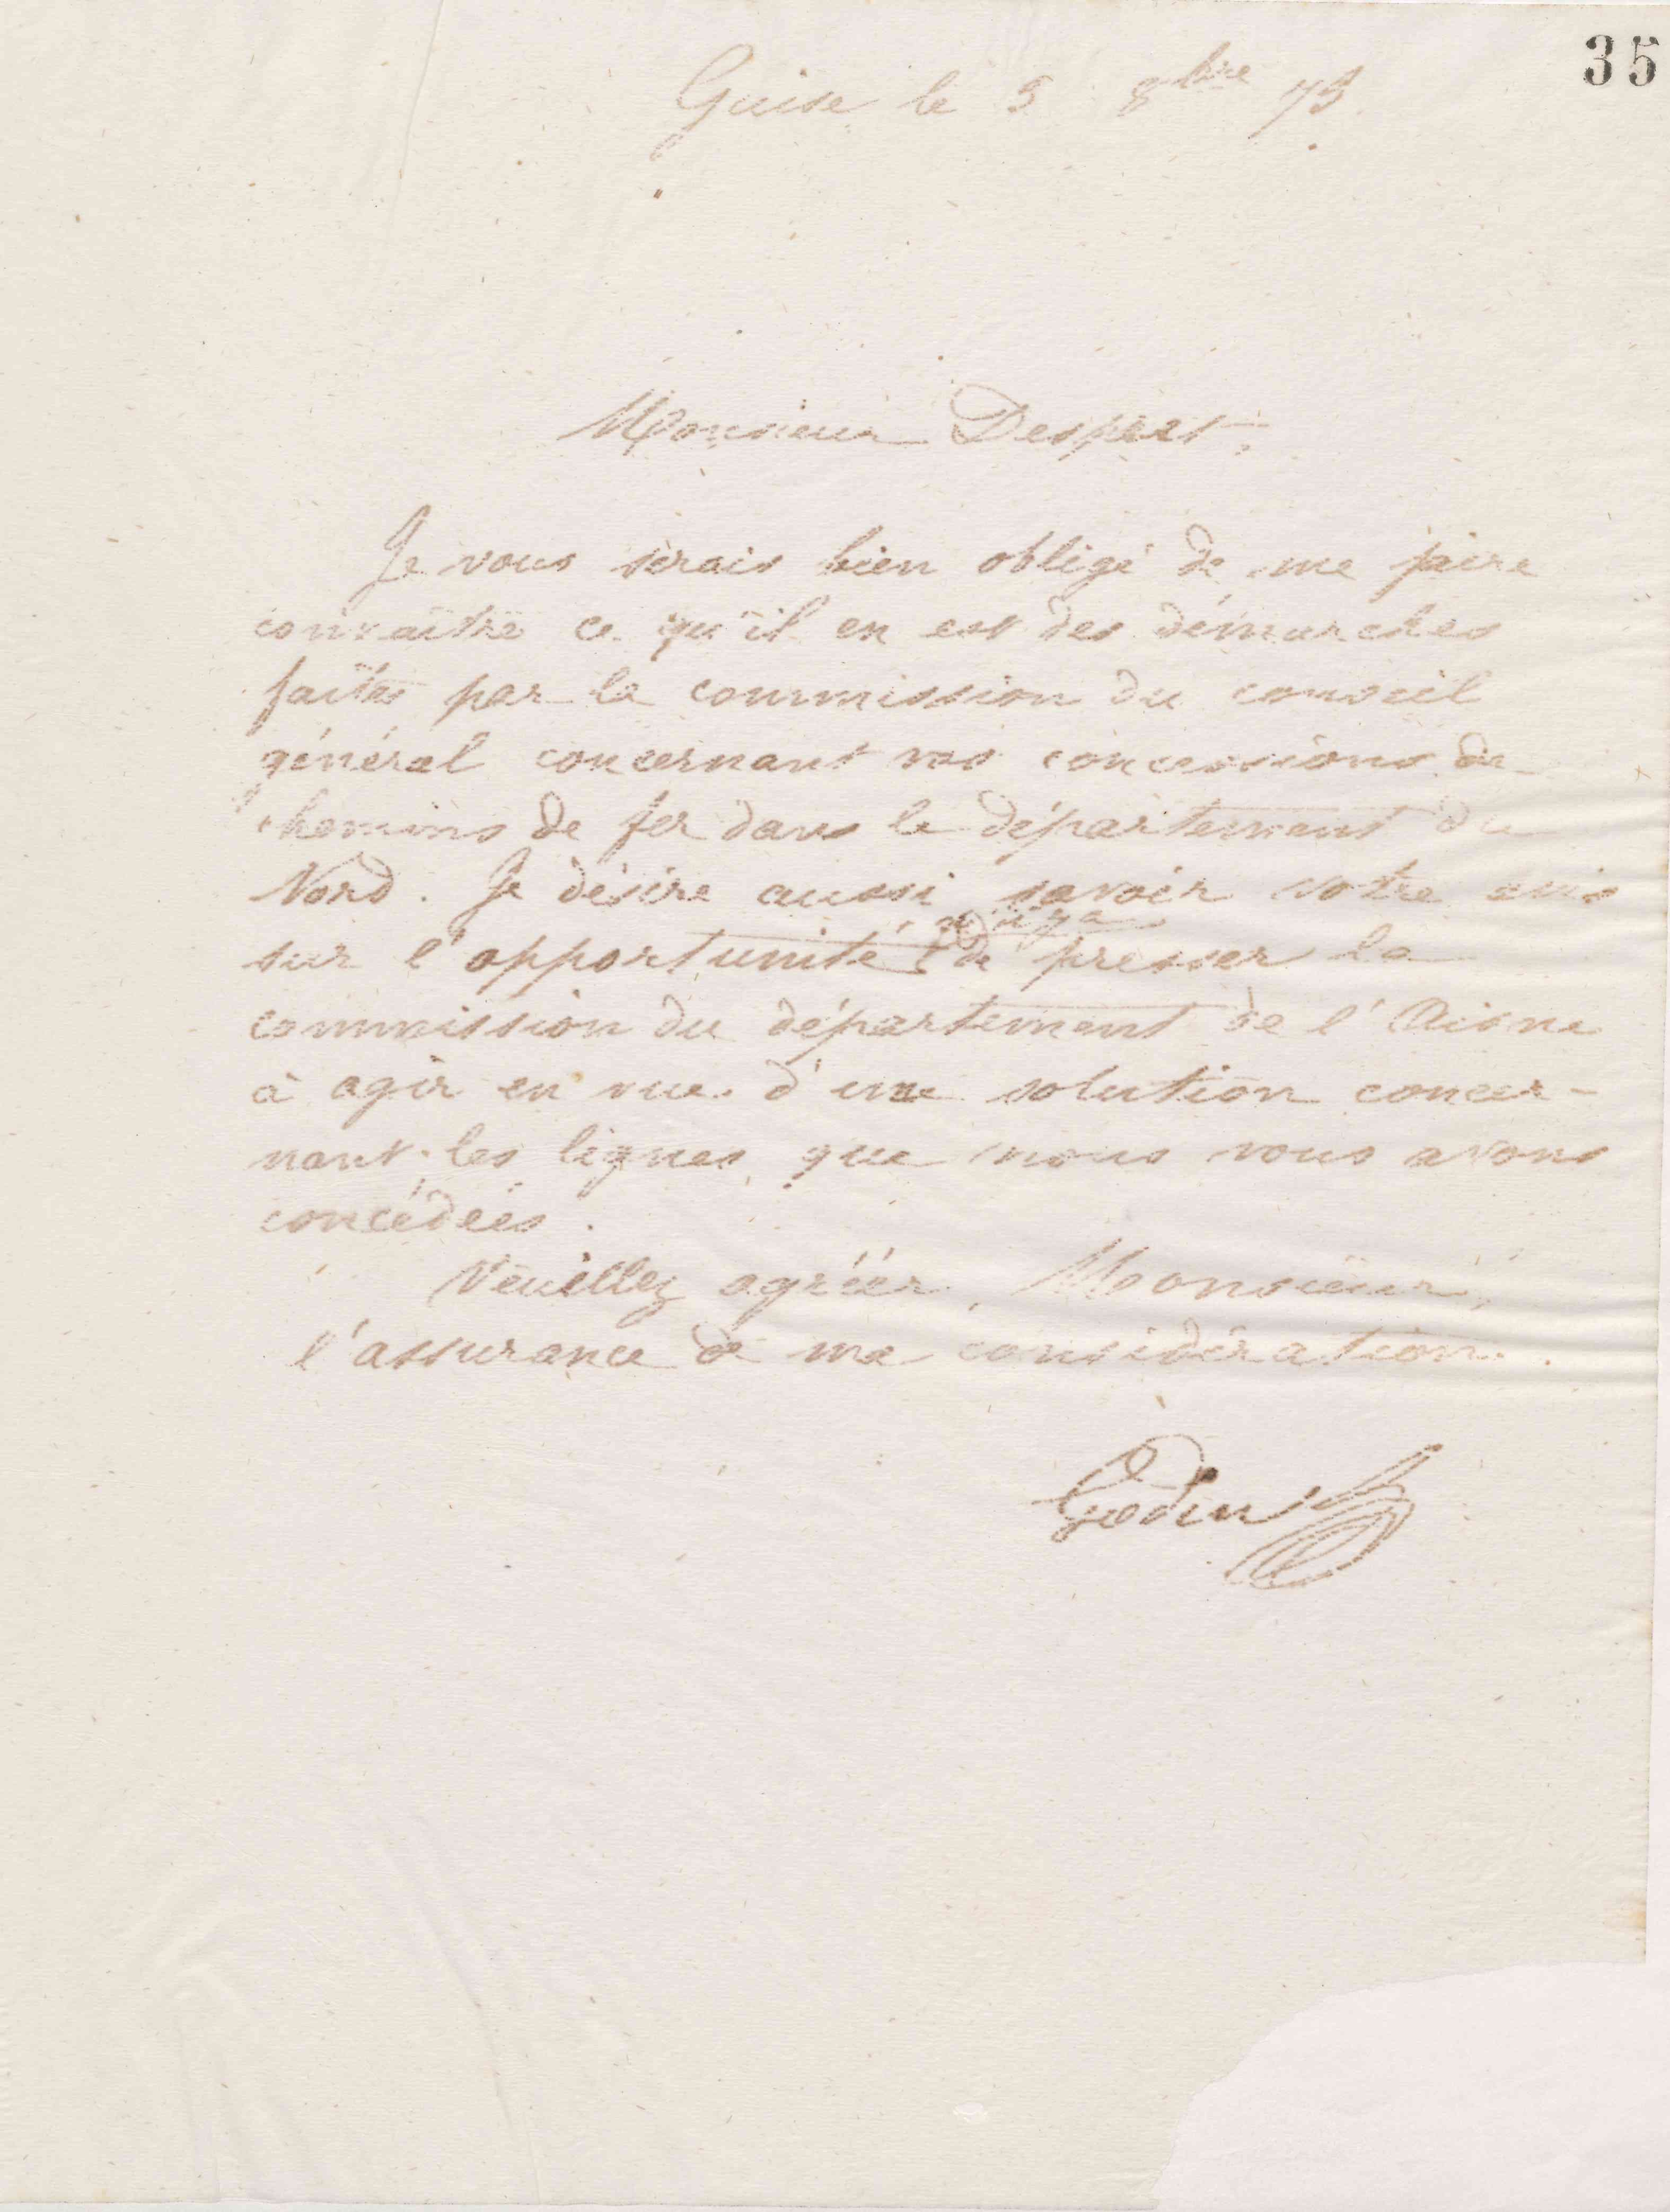 35
Guise le 3 8bre 73.
Monsieur Despret,
Je vous serais bien obligé de me faire
connaître ce qu'il en est des démarches
faites par la commission du conseil
général concernant vos concessions de
chemins de fer dans le département du
Nord. Je désire aussi savoir votre avis
qu'il y a
sur l'opportunité de presser la
commission du département de l'Aisne
à agir en vue d'une solution concer-
nant les lignes que nous vous avons
concédées.
Veuillez agréer, Monsieur,
l'assurance de ma considération.
Godin